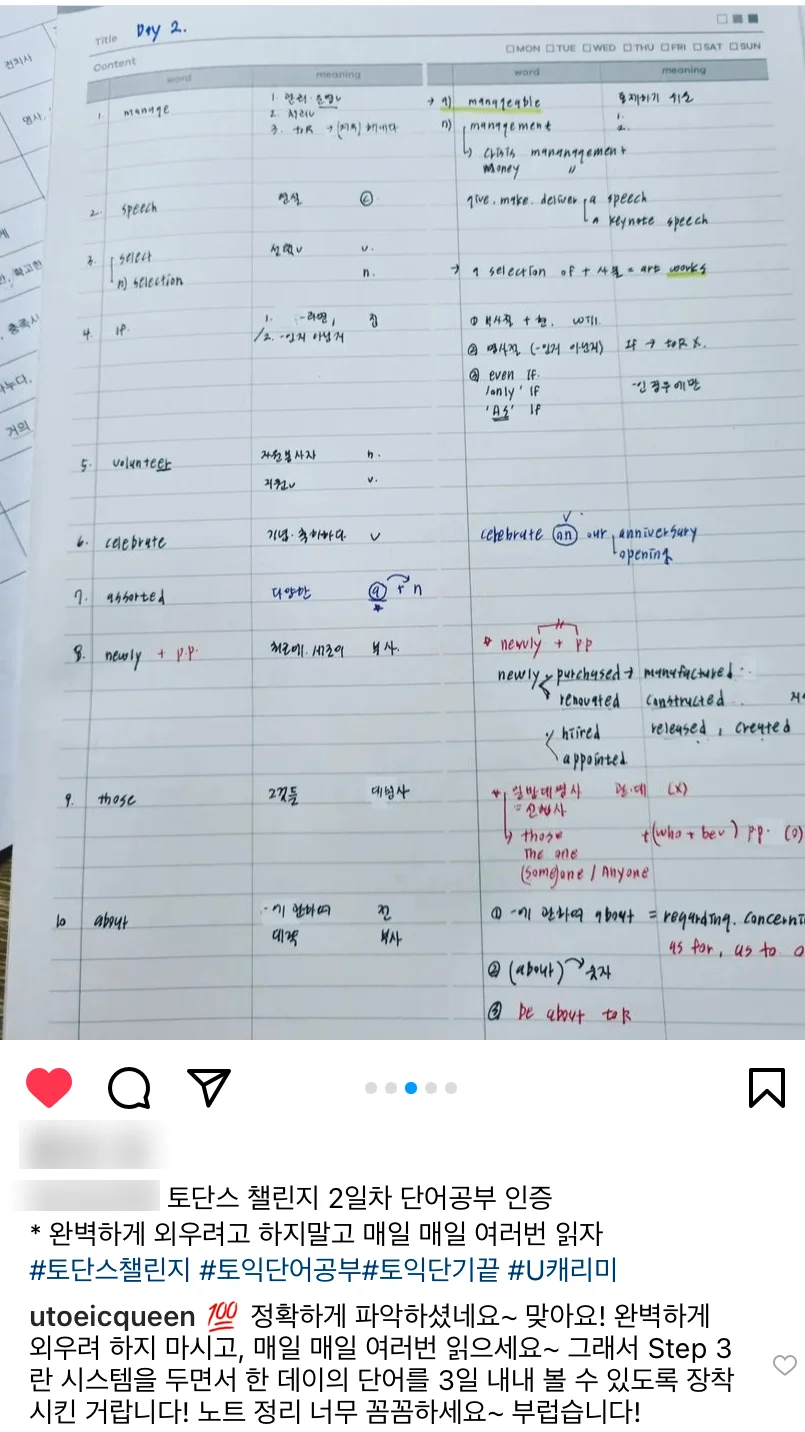 Title Day 2.
Content
MON TUE WED THU FRI SAT SUN
word meaning word meaning
1. manage
1. 관리·운영v
2. 처리v
3. toR → (지지) 해내다
→ a) manageable
n) management
↳ crisis mananagement
money "
1.
2.
2. speech 연설 ⓒ
give. make. deliver a speech
a keynote speech
3. select 선택v v.
n) selection n.
→ a selection of + 사물 = art works
4. if.
1. ~라면, 접
/2. ~인지 아닌지
① 부사절 + 현. will
② 명사절 (~인지 아닌지) If → toR X.
③ even If.
/only' IF ~인 경우에만
'As' IF
5. volunteer 자원봉사자 n.
지원v v.
6. celebrate 기념·축하하다 v
celebrate an our anniversary
opening
7. assorted 다양한 a + n
8. newly + p.p. 최근에. 새로이 부사.
* newly + pp
newly purchased → manufactured..
renovated constructed..
hiired released, created
appointed
9. those 그것들 대명사
* 일반대명사 관·대 (X)
= 인칭사
↳ those +(who + bev) pp. (o)
The one
(someone / Anyone
10 about
~에 관하여 전
대략 부사
① ~에 관하여 about = regarding. concerni
as for, as to
② (about) 숫자
③ be about toR
전치사
명사.
충족시
나누다.
거의
토단스 챌린지 2일차 단어공부 인증
* 완벽하게 외우려고 하지말고 매일 매일 여러번 읽자
#토단스챌린지 #토익단어공부#토익단기끝 #U캐리미
utoeicqueen 💯 정확하게 파악하셨네요~ 맞아요! 완벽하게
외우려 하지 마시고, 매일 매일 여러번 읽으세요~ 그래서 Step 3
란 시스템을 두면서 한 데이의 단어를 3일 내내 볼 수 있도록 장착
시킨 거랍니다! 노트 정리 너무 꼼꼼하세요~ 부럽습니다!